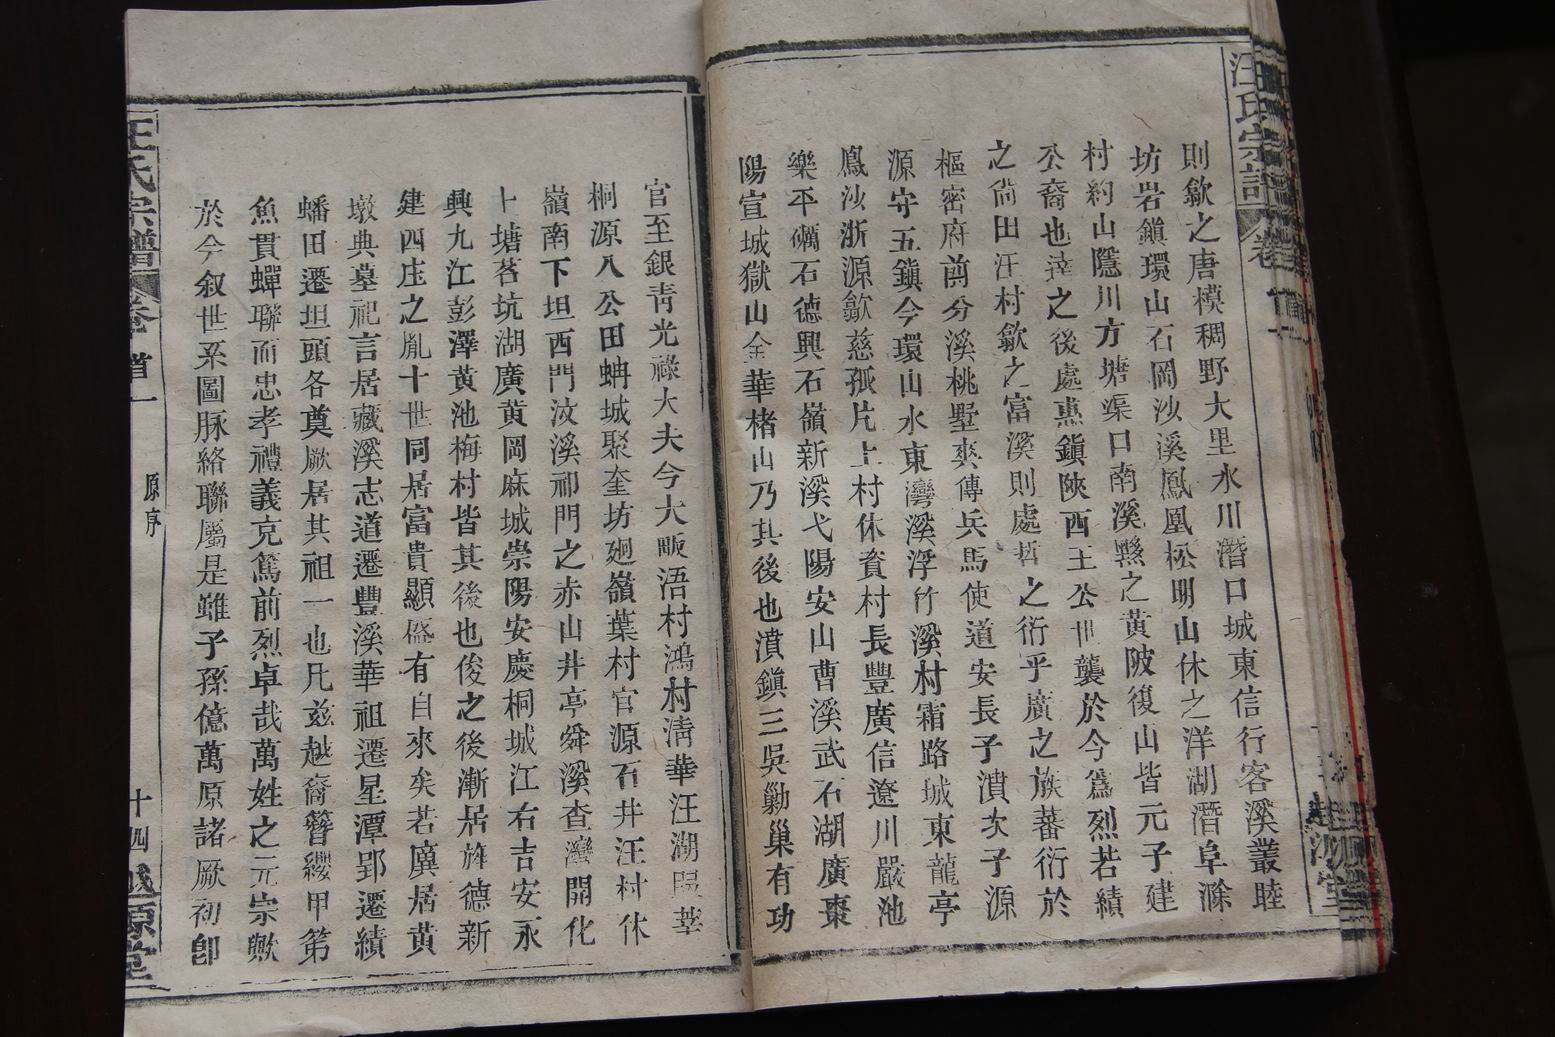 汪氏宗譜 卷首
則歙之唐模稠野大里水川潛口城東信行客溪叢睦
坊岩鎮環山石岡沙溪鳳凰松明山休之洋湖潛阜滁
村約山隱川方塘渠口南溪黟之黃陂復山皆元子建
公裔也達之後處惠鎮陝西王公世襲於今爲烈若績
之尚田汪村歙之富溪則處哲之衍乎廣之族蕃衍於
樞密府前分溪桃墅爽傳兵馬使道安長子濆次子源
源守五鎮今環山水東灣溪浮竹溪村霜路城東龍亭
鳳沙浙源歙慈孤片上村休資村長豐廣信遼川嚴池
樂平礪石德興石嶺新溪弋陽安山曹溪武石湖廣棗
陽宣城獄山金華楮山乃其後也濆鎮三吳勦巢有功
官至銀青光祿大夫今大畈浯村鴻村清華汪湖陽莘
桐源八公田蚺城聚奎坊廻嶺葉村官源石井汪村休
嶺南下坦西門汶溪祁門之赤山井亭舜溪查灣開化
十塘苔坑湖廣黃岡麻城崇陽安慶桐城江右吉安永
興九江彭澤黃池梅村皆其後也俊之後漸居旌德新
建四庄之胤十世同居富貴顯盛有自來矣若廙居黃
墩典墓祀言居藏溪志道遷豐溪華祖遷星潭郢遷績
蟠田遷坦頭各奠厥居其祖一也凡茲越裔簪纓甲第
魚貫蟬聯而忠孝禮義克篤前烈卓哉萬姓之元宗歟
於今叙世系圖脉絡聯屬是雖子孫億萬原諸厥初卽
汪氏宗譜 卷首一 原序 十四 越源堂